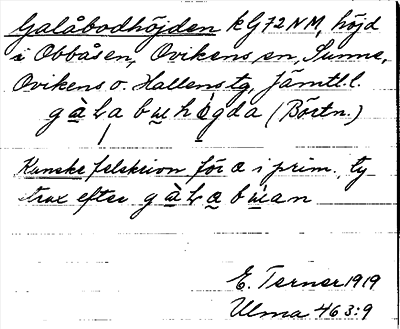 Galåbodhöjden kG72NM, höjd
i Obbåsen, Ovikens sn, Sunne,
Ovikens o. Hallens tg, Jämtl. l.
gàLa buhögda (Börtn.)
Kanske felskrivn för a i prim., ty
strax efter gàLa buan
E. Terner 1919
Ulma 463:9